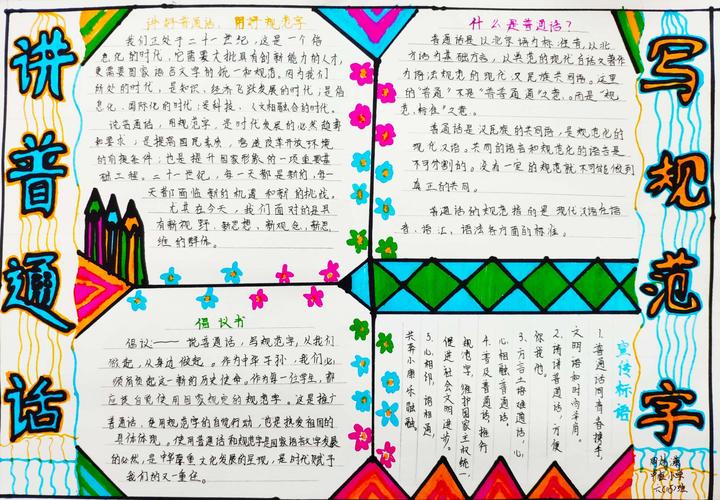 讲普通话
写规范字
讲好普通话，用好规范字
我们正处于二十一世纪，这是一个信
息化的时代，它需要大批具有创新能力的人才，
更需要国家语言文字的统一和规范，因为我们
所处的时代，是知识、经济飞跃发展的时代；是信
息化、国际化的时代；是科技、人文相融合的时代。
说普通话，用规范字，是时代发展的必然趋势
和要求；是提高国民素质，改革开放环境
的前提条件；也是提升国家形象的一项重要基
础工程。二十一世纪，每一天都是新的，每一
天都面临新的机遇和新的挑战。
尤其在今天，我们面对的是具
有新视野、新思想、新观色、新思
维的群体。
什么是普通话？
普通话是以北京语为标准音，以北
方话为基础方言，以典范的现代白话文著作
为语法规范的现代汉民族共同语。这里
的“普通”不是“普普通通”之意。而是“规
范、标准”之意。
普通话是汉民族的共同语，是规范化的
现代汉语。共同的语言和规范化的语言是
不可分割的。没有一定的规范就不可能做到
真正的共同。
普通话的规范指的是现代汉语在语
音、语汇、语法各方面的标准。
倡议书
倡议——说普通话，写规范字，从我们
做起，从身边做起。作为中华子孙，我们必
须肩负起这一新的历史使命。作为每一位学生，都
应该自觉使用国家规定的规范字。这是推广
普通话，使用规范字的自觉行动，也是热爱祖国的
具体体现。使用普通话和规范字是国家语言文字发展
的必然，是中华尊重文化发展的呈现，是时代赋予
我们的又一重任。
宣传标语
1、普通话同青春携手，
文明语和时尚并肩。
2、请讲普通话，方便
你我他。
3、方言土语难通话，心
心相融普通话。
4、普及普通话，推行
规范字，维护国家主权统一，
促进社会文明进步。
5、心相印，语相通，
共奔小康乐融融。